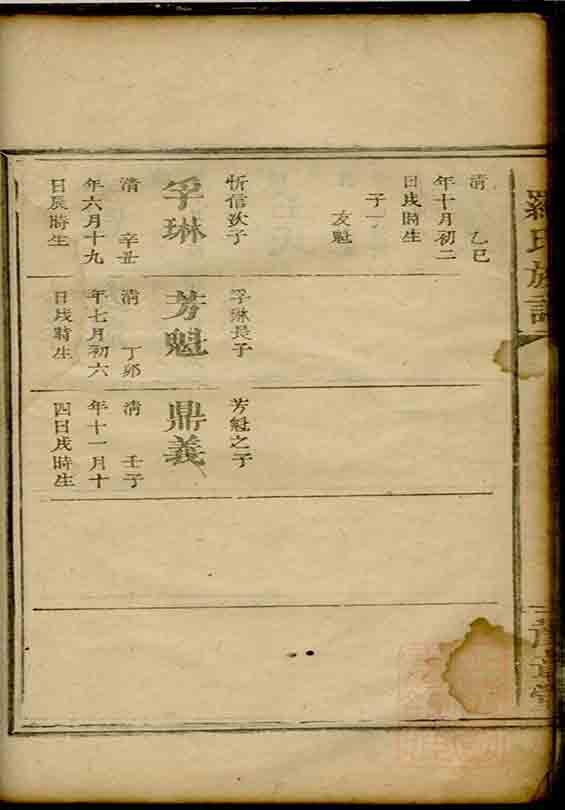 羅氏族譜
清 乙巳
年十月初二
日戌時生
子一
友魁
忻信次子
孚琳
清 辛丑
年六月十九
日辰時生
孚琳長子
芳魁
清 丁卯
年七月初六
日戌時生
芳魁之子
鼎義
清 壬子
年十一月十
四日戌時生